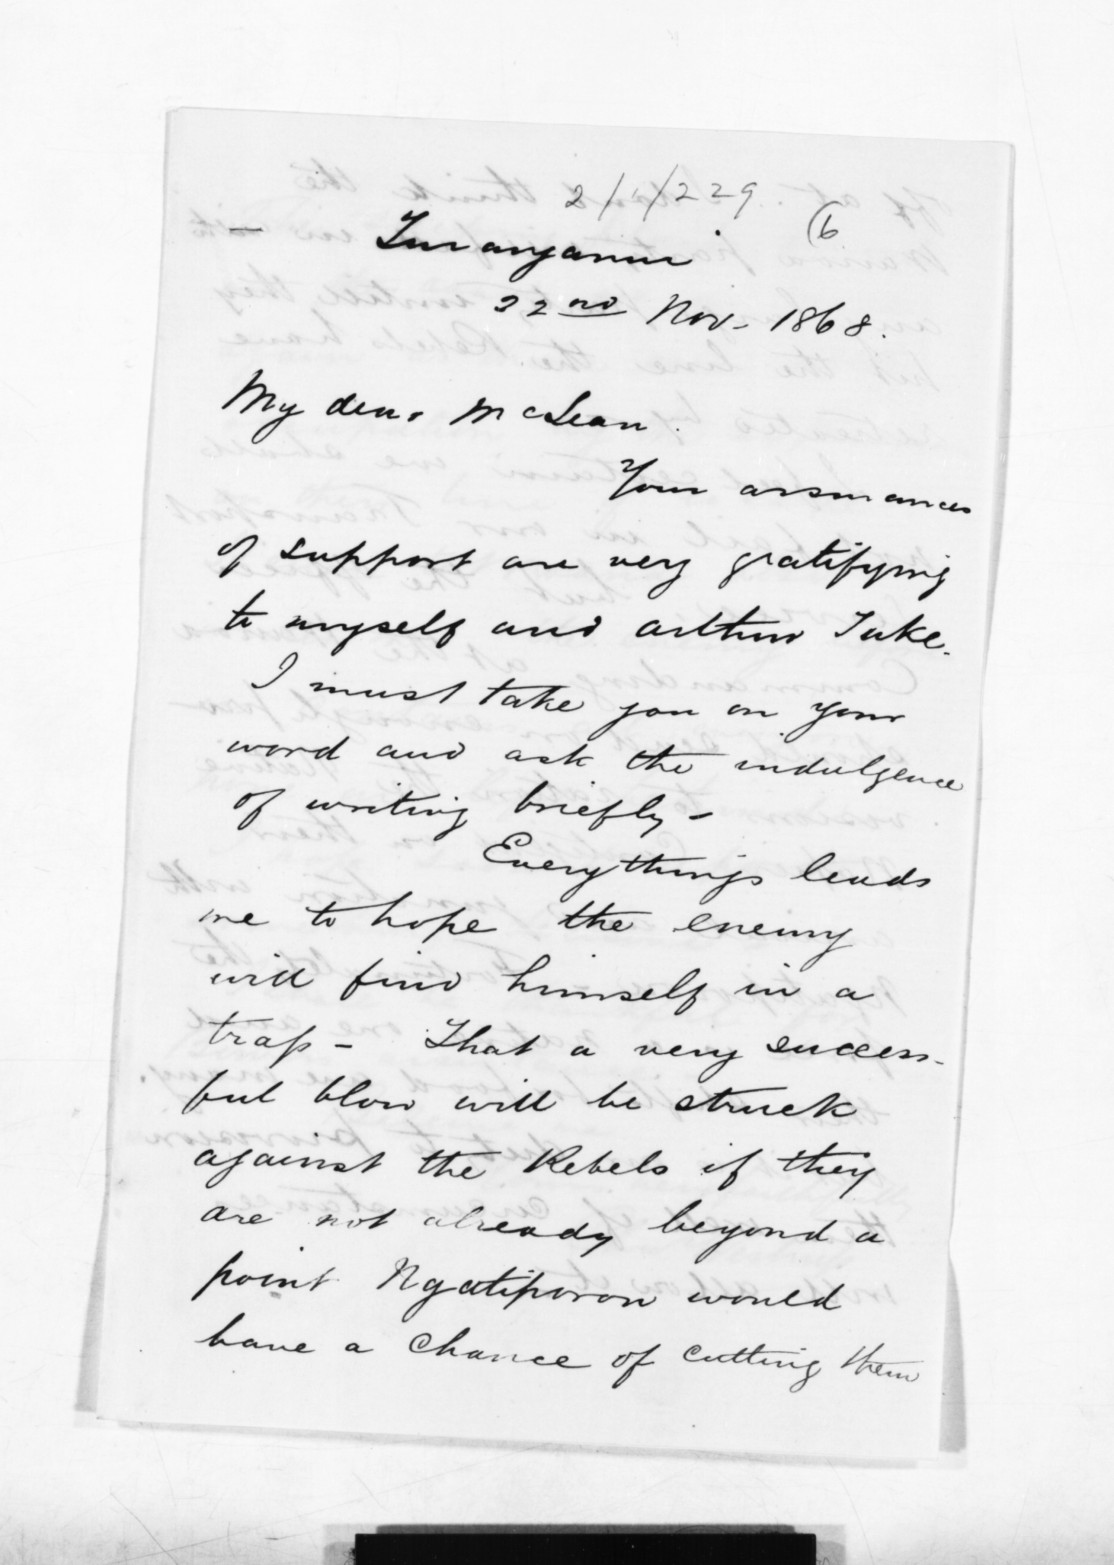 2/1/229
(6
Turanganui
22nd Nov. 1868.
My dear McLean.
Your assurances
of support are very gratifying
to myself and Arthur Tuke.
I must take you on your
word and ask the indulgence
of writing briefly -
Everythings leads
me to hope the enemy
will find himself in a
trap - That a very success-
ful blow will be struck
against the Rebels if they
are not already beyond a
point Ngatiporou would
have a chance of cutting them